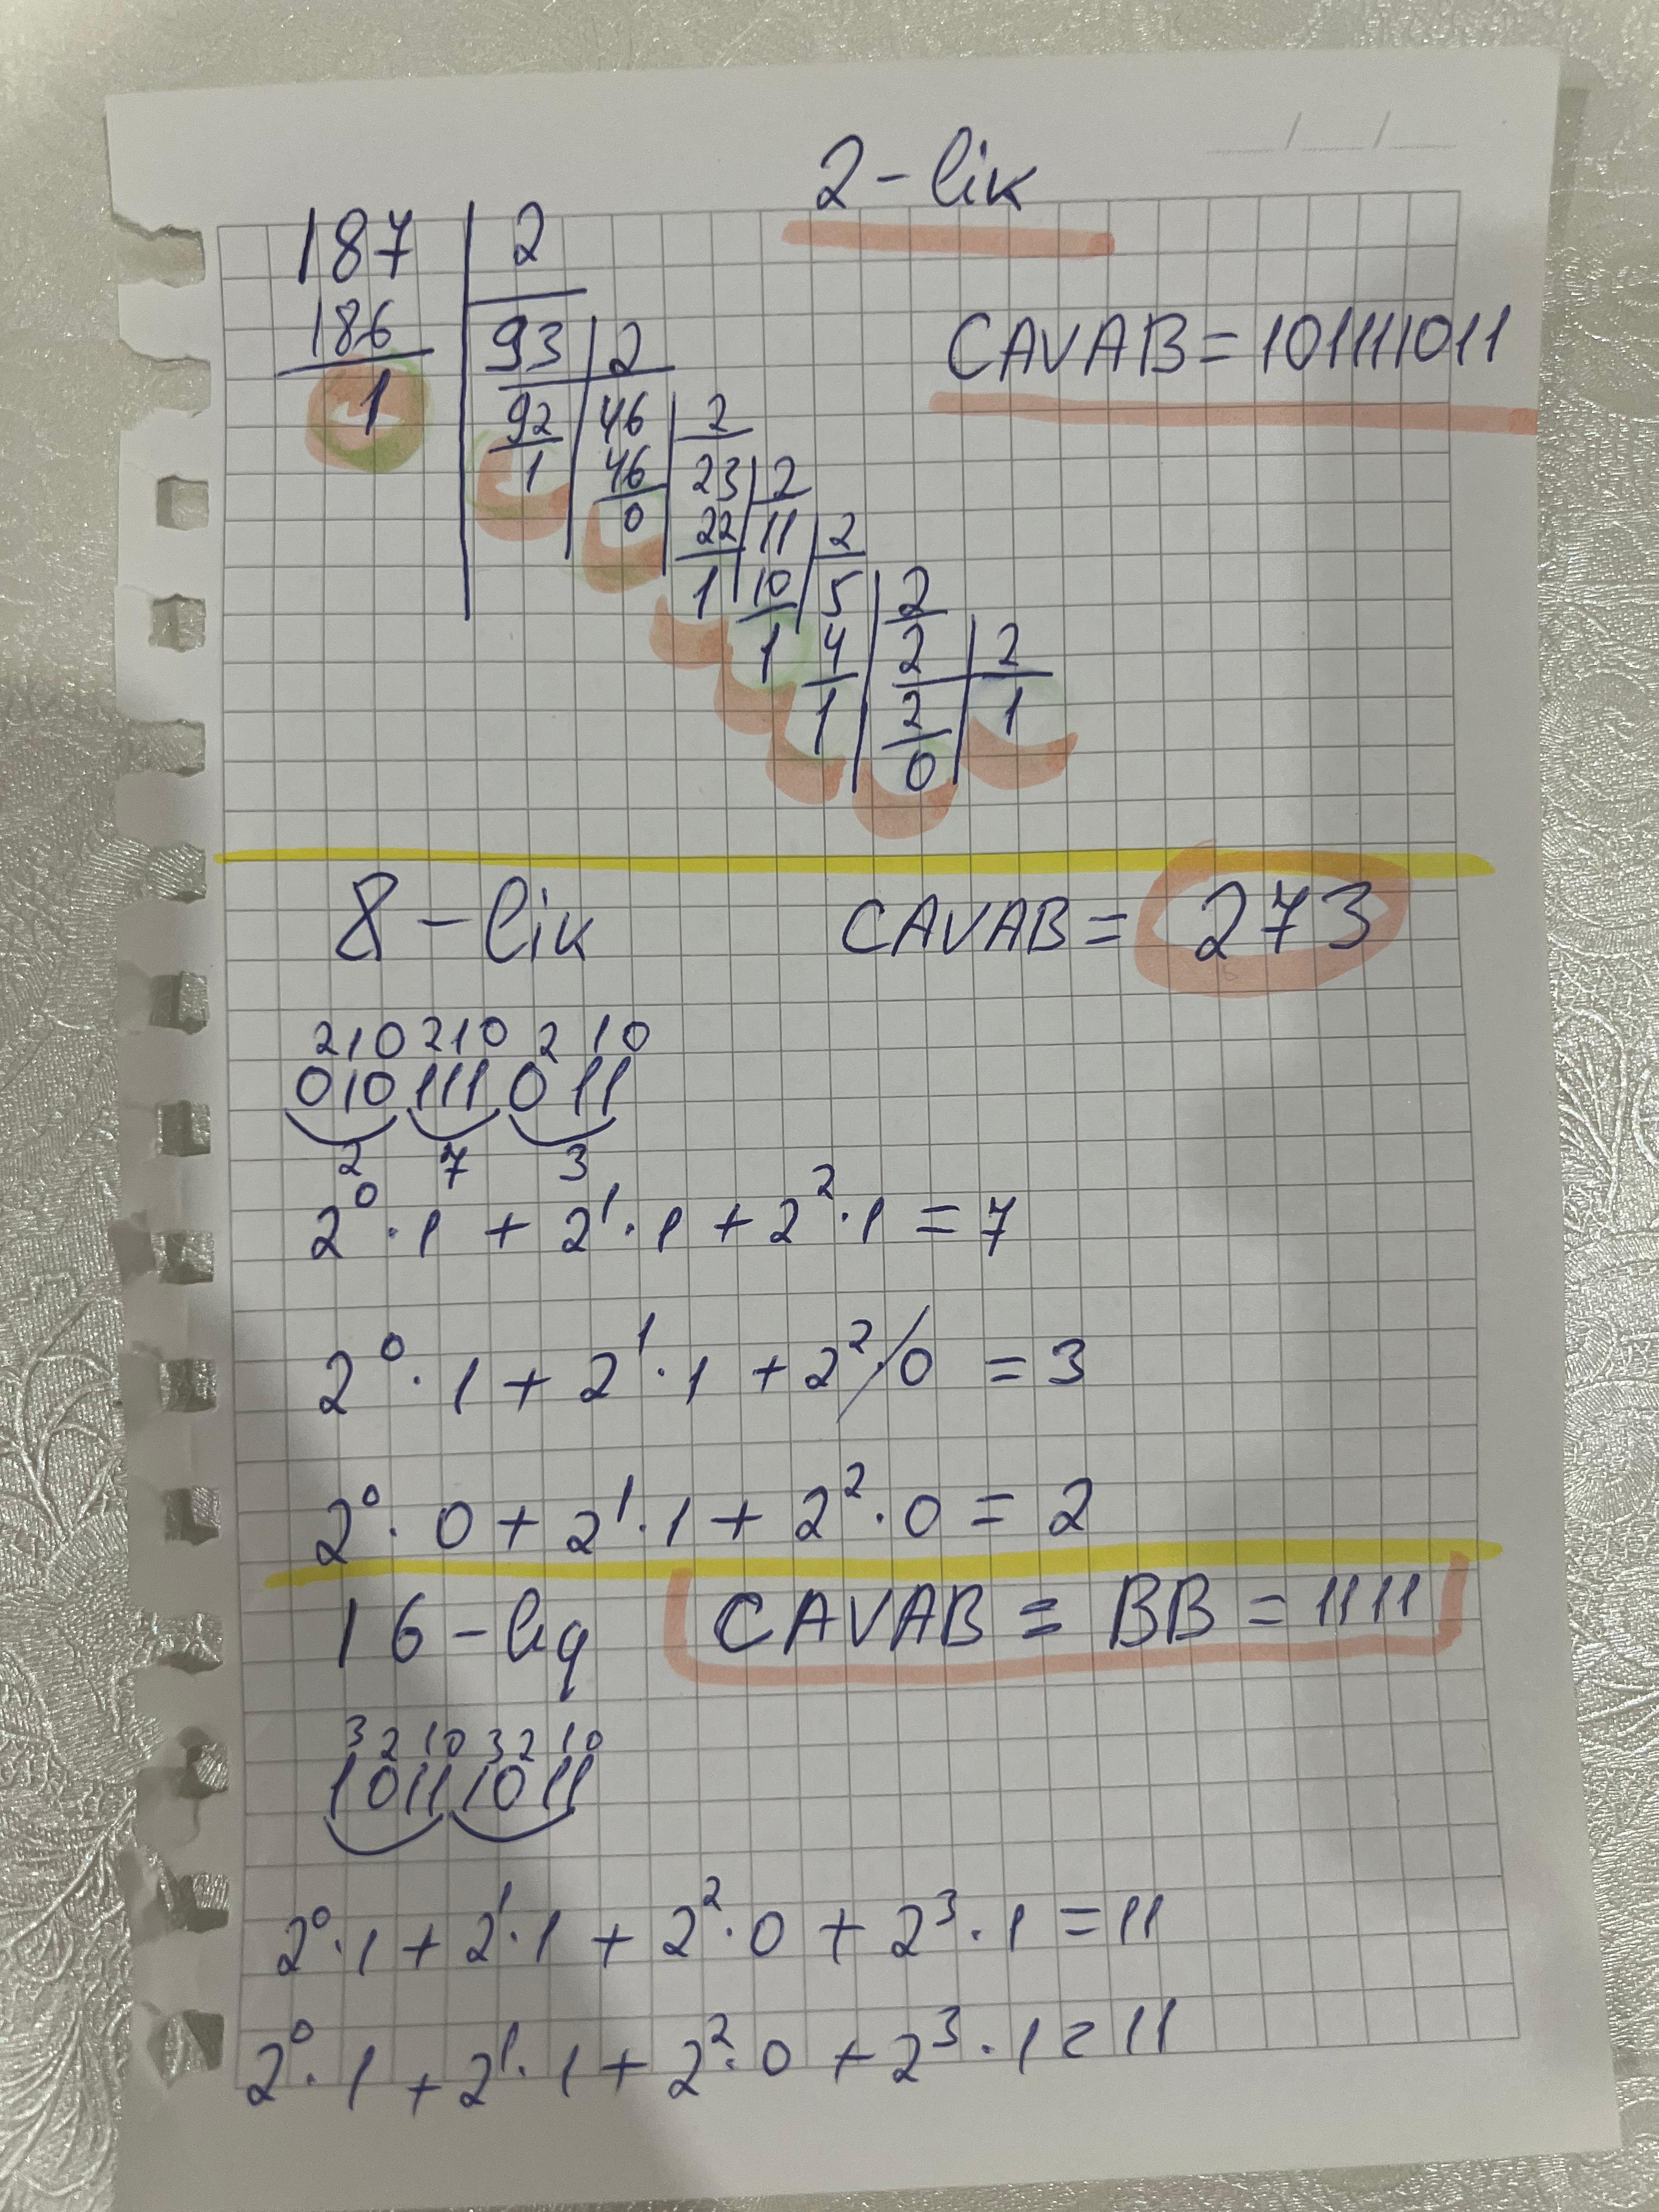 2-lik
187 2
186 93 2
1 92 46 2
1 46 23 2
0 22 11 2
1 10 5 2
1 4 2 2
1 2 1
0
CAVAB = 101111011
8-lik CAVAB = 273
210 210 2 10
010 111 011
2 7 3
2⁰·1 + 2¹·1 + 2²·1 = 7
2⁰·1 + 2¹·1 + 2²·0 = 3
2⁰·0 + 2¹·1 + 2²·0 = 2
16-lıq CAVAB = BB = 1111
3 2 1 0 3 2 1 0
1011 1011
2⁰·1 + 2¹·1 + 2²·0 + 2³·1 = 11
2⁰·1 + 2¹·1 + 2²·0 + 2³·1 = 11